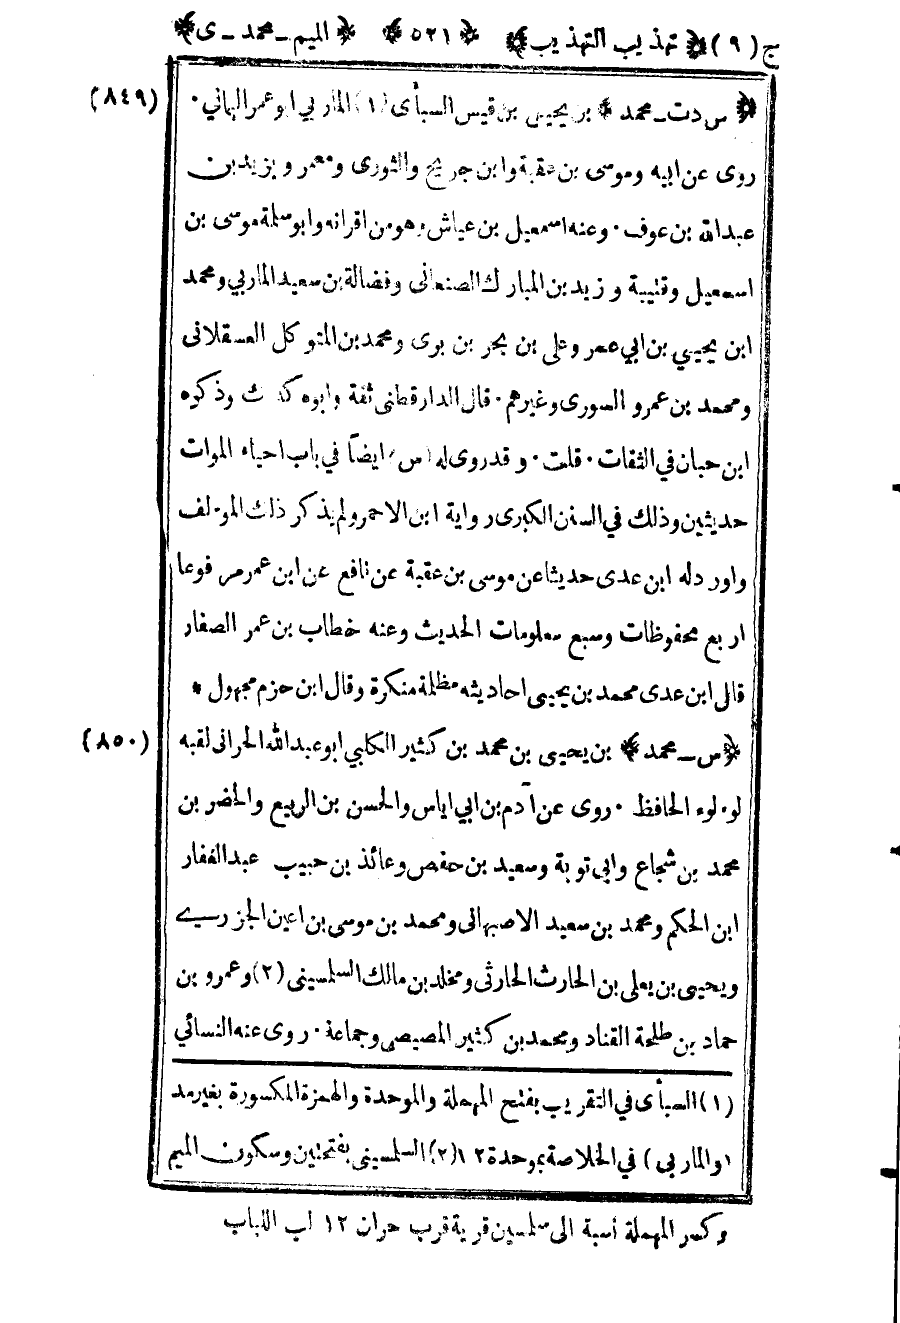 ج (٩) ﴿ تهذيب التهذيب ﴾ ﴿ ٥٢١ ﴾ ﴿ الميم ـ محمد ـ ى ﴾
(٨٤٩)
﴿ س دت ـ محمد ﴾ بن يحيى بن قيس السبأى (١) الماربي ابو عمر اليماني ·
روى عن ابيه وموسى بن عقبة وابن جريج والثورى ومعمر ويزيد بن
عبدالله بن عوف · وعنه اسمعيل بن عياش وهو من اقرانه وابو سلمة موسى بن
اسمعيل وقتيبة وزيد بن المبارك الصنعانى وفضالة بن سعيد الماربي ومحمد
ابن يحيى بن ابي عمر وعلى بن بحر بن برى ومحمد بن المتوكل العسقلانى
ومحمد بن عمرو السورى وغيرهم · قال الدارقطنى ثقة وابوه كذلك وذكره
ابن حبان في الثقات · قلت · وقد روى له (س) ايضاً في باب احياء الموات
حديثين وذلك في السنن الكبرى رواية ابن الاحمر ولم يذكر ذلك المؤلف
واورد له ابن عدى حديثا عن موسى بن عقبة عن نافع عن ابن عمر مرفوعا
اربع محفوظات وسبع معلومات الحديث وعنه خطاب بن عمر الصفار
قال ابن عدى محمد بن يحيى احاديثه مظلمة منكرة وقال ابن حزم مجهول *
(٨٥٠)
﴿ س ـ محمد ﴾ بن يحيى بن محمد بن كثير الكلبي ابو عبدالله الحرانى لقبه
لؤلوء الحافظ · روى عن آدم بن ابي اياس والحسن بن الربيع والخضر بن
محمد بن شجاع وابى توبة وسعيد بن حفص وعائذ بن حبيب عبد الغفار
ابن الحكم ومحمد بن سعيد الاصبهانى ومحمد بن موسى بن اعين الجزرى
ويحيى بن يعلى بن الحارث الحارثى ومخلد بن مالك السلمسينى (٢) وعمرو بن
حماد بن طلحة القناد ومحمد بن كثير المصيصى وجماعة · روى عنه النسائي
(١) السبأى في التقريب بفتح المهملة والموحدة والهمزة المكسورة بغير مد
(والماربى) في الخلاصة بموحدة ١٢ (٢) السلمسينى بفتحتين وسكون الميم
وكسر المهملة نسبة الى سلمسين قرية قرب حران ١٢ لب اللباب